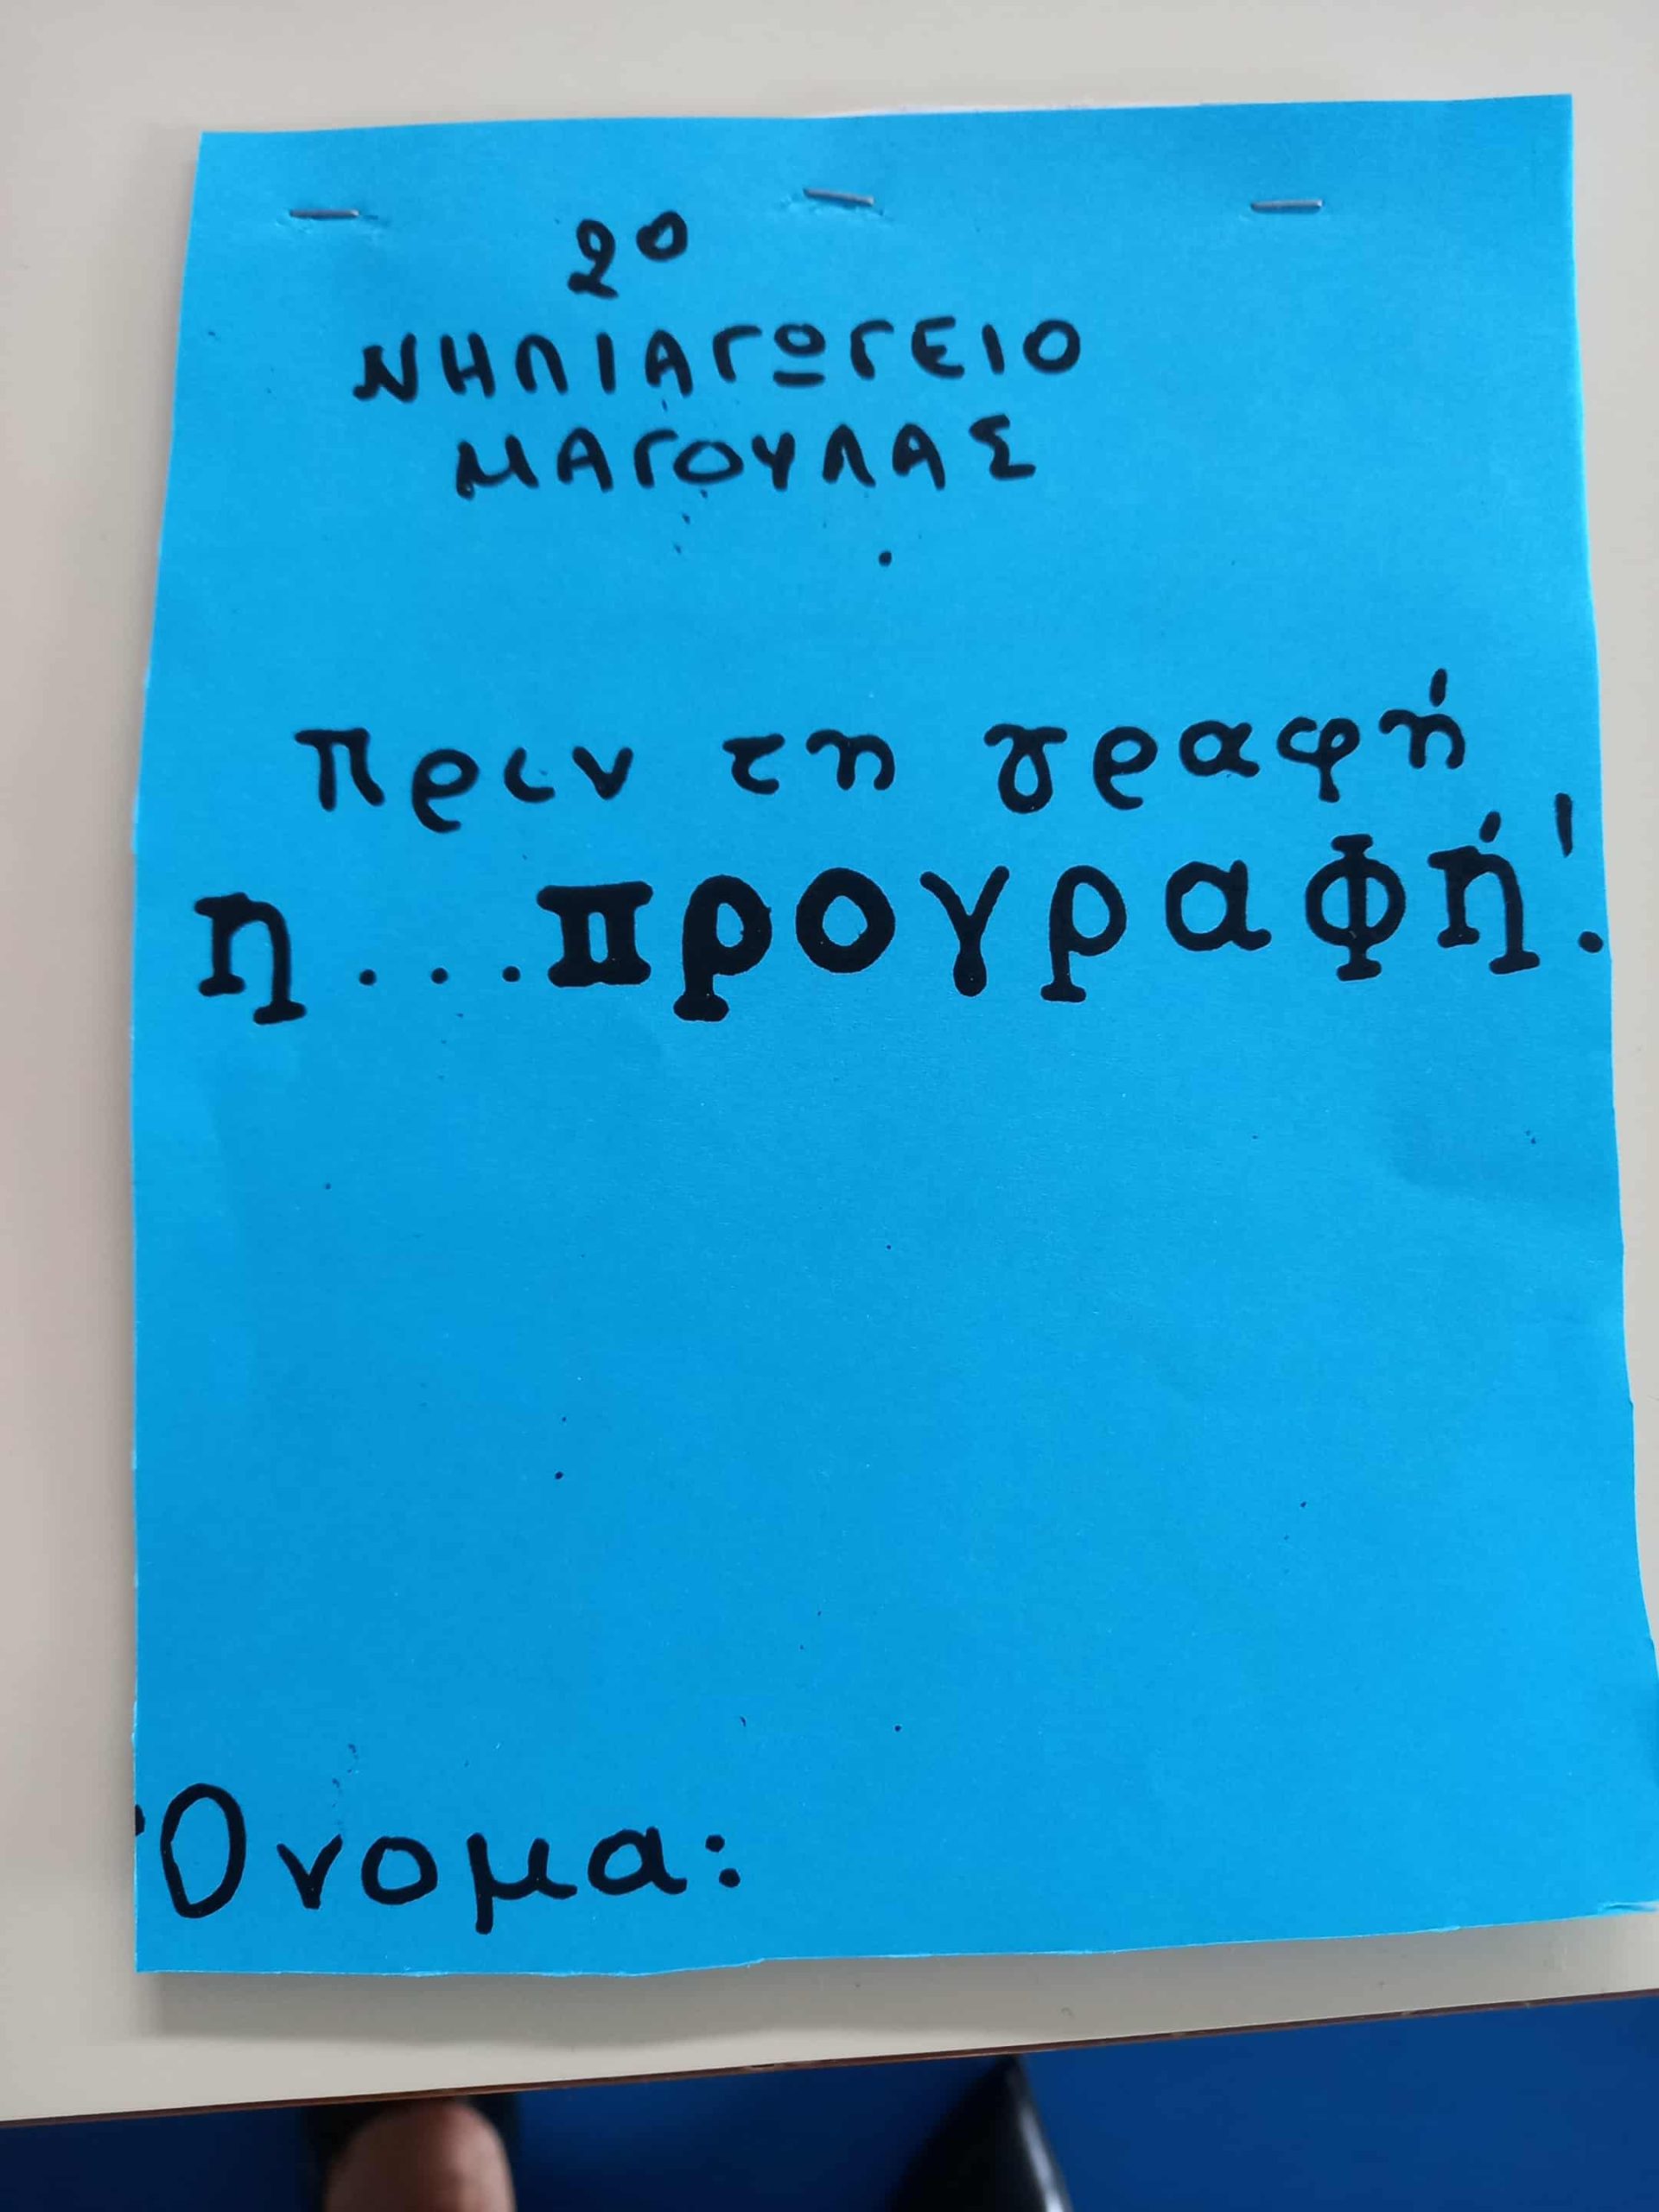 2ο
ΝΗΠΙΑΓΩΓΕΙΟ
ΜΑΓΟΥΛΑΣ
Πριν τη γραφή
η...προγραφή!
Όνομα: